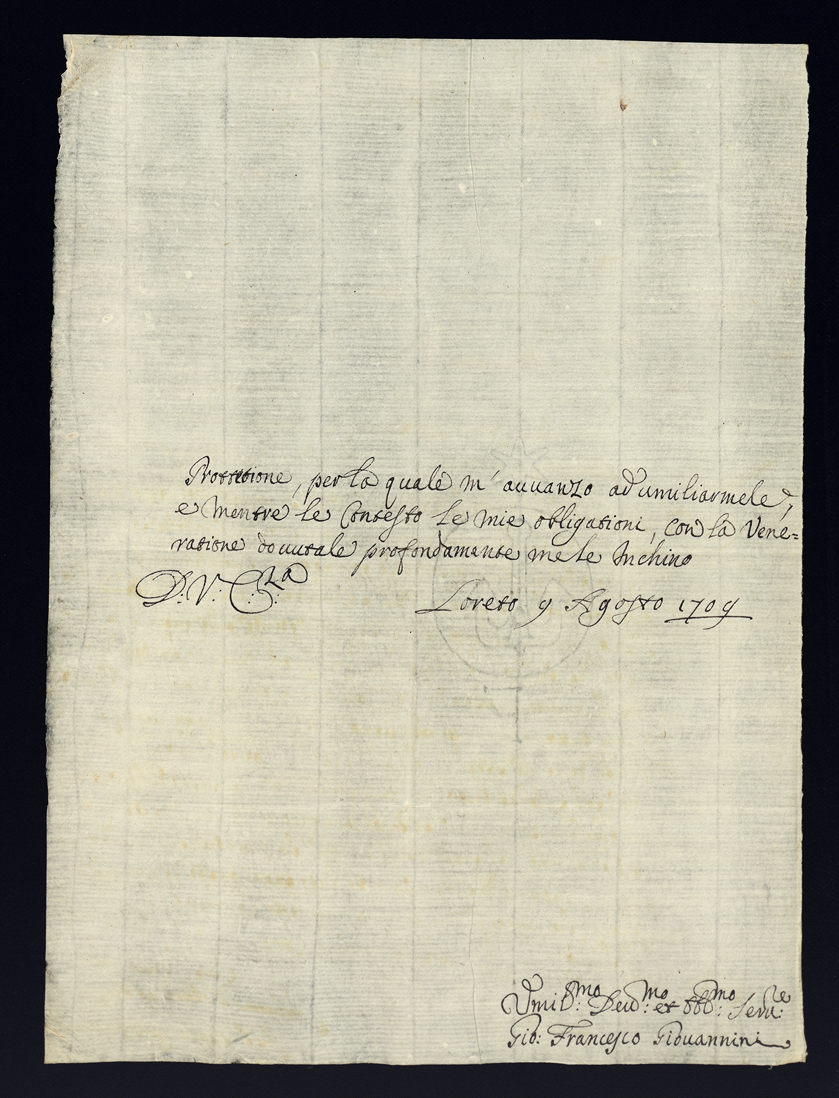 Prottetione, per la quale m' auuanzo ad umiliarmele,
e mentre le Contesto le mie obligationi, con la Vene=
ratione douutale profondamente me le Inchino
D: V: E:za
Loreto 9 Agosto 1709
Umil:mo Deu:mo et obb:mo Seru:re
Gio: Francesco Giouannini